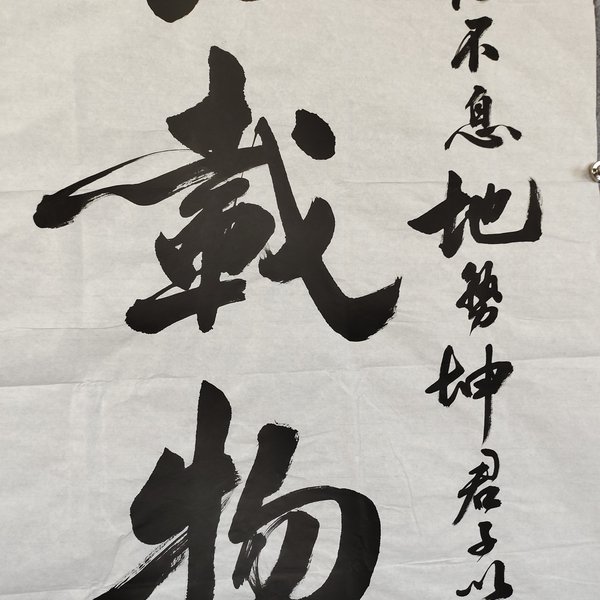 不息地勢坤君子以
載物